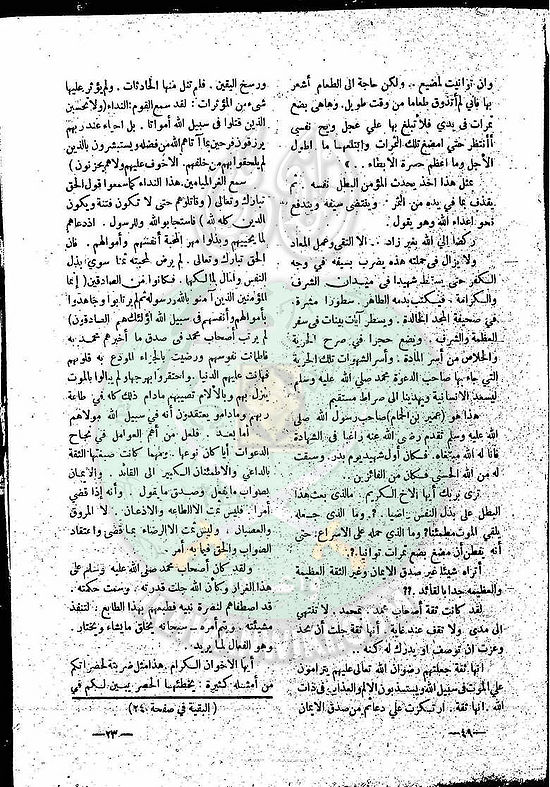 وان تزانيت لمضيع .. ولكن حاجة الى الطعام أشعر
بها فاني لم أتذوق طعاما من وقت طويل. وهاهى بضع
تمرات فى يدى فلا تبلغ بها على عجل ويح نفسى
أأنتظر حتى امضغ تلك التمرات وابتلعها ما اطول
الأجل وما اعظم حسرة الابطاء .. »
بمثل هذا اخذ يحدث المؤمن البطل نفسه . ثم
يقذف بما فى يده من التمر . ويقتضى سيفه ويندفع
نحو أعداء الله وهو يقول :
ركضا الى الله بغير زاد .. الا التقى وعمل المعاد
ولا يزال فى حملته هذه يضرب بسيفه فى وجه
الكفر حتى يسقط شهيدا فى ميدان الشرف
والكرامة . فيكتب بدمه الطاهر . سطورا مشرقة .
فى صحيفة المجد الخالدة . ويسطر آيات بينات فى سفر
العظمة والشرف . ويضع حجرا فى صرح الحرية
والخلاص من أسر المادة ، وأسر الشهوات تلك الحرية
التى جاء بها صاحب الدعوة محمد صلى الله عليه وسلم
ليسعد الانسانية ويهديها الى صراط مستقيم
هذا هو (عمير بن الحمام) صاحب رسول الله صلى
الله عليه وسلم تقدم رضى الله عنه راغبا فى الشهادة
فأناله الله مبتغاه . فكان أول شهيد يوم بدر . وسبقت
له من الله الحسنى فكان من الفائزين ..
ترى بربك أيها الاخ الكريم . ماالذى بعث هذا
البطل على بذل النفس . راضيا . ؟. وما الذى جعله
يلقى الموت مطمئنا؟ وما الذى حمله على الاسراع: حتى
أنه يفطن أن مضغ بضع تمرات توانيا .؟
أتراه شيئا غير صدق الايمان وغير الثقة العظيمة
والعظيمة جدا بالقائد .؟؟
لقد كانت ثقة أصحاب محمد . بمحمد . لا تنتهى
الى مدى ولا تقف عند غاية . أنها ثقة جلت أن تحد
وعزت ان توصف او يدرك له كنه ..
انها ثقة جعلتهم رضوان الله تعالى عليهم يترامون
على الموت فى سبيل الله ويستعذبون الالم والعذاب . فى ذات
الله . انها ثقة .. ارتكزت على دعائم من صدق الايمان
—٤٩—
ورسخ اليقين . فلم تنل منها الحادثات . ولم يؤثر عليها
شىء من المؤثرات : لقد سمع القوم : النداء (ولا تحسبن
الذين قتلوا فى سبيل الله أمواتا . بل احياء عند ربهم
يرزقون فرحين بما آتاهم الله من فضله ويستبشرون بالذين
لم يلحقوا بهم من خلفهم . الا خوف عليهم ولا هم يحزنون )
سمع الغر الميامين . هذا النداء كما سمعوا قول الحق
تبارك وتعالى ( وقاتلوهم حتى لا تكون فتنة ويكون
الدين كله لله ) فاستجابوا لله وللرسول . اذ دعاهم
لما يحييهم وبذلوا مهر المحبة أنفسهم وأموالهم . فان
الحق تبارك وتعالى . لم يرض لمحبته ثمنا سوى بذل
النفس والمال لمالكها . فكانوا من الصادقين ( إنما
المؤمنين الذين آمنو بالله ورسوله ثم لم يرتابوا وجاهدوا
بأموالهم وأنفسهم فى سبيل الله أولئك هم الصادقون)
لم يرتب أصحاب محمد فى صدق ما أخبرهم محمد به
فاطمأنت نفوسهم ورضيت بالجزاء الموعود به قلوبهم
فهانت عليهم الدنيا . واحتقروا بهرجها ولم يبالوا بالموت
ينزل بهم وبالآلام تصيبهم مادام ذلك كله فى طاعة
ربهم ومادامو يعتقدون أنه فى سبيل الله مولاهم
أما بعد . فلعل من أهم العوامل فى نجاح
الدعوات أيا كان نوعها . ومهما كانت صبغتها الثقة
بالداعى والاطمئنان الكبير الى القائد . والايمان
بصواب ما يفعل وصدق ما يقول . وأنه إذا قضى
أمرا : فليس ثمت الا الطاعه والاذعان . لا المروق
والعصيان . وليس ثمت الا الرضاء بما قضى واعتقاد
الصواب والحق فيما به أمر .
ولقد كان أصحاب محمد صلى الله عليه وسلم على
هذا الغرار وكأن الله جلت قدرته . وسمت حكمته .
قد اصطفاهم لنصرة نبيه فطبعهم بهذا الطابع : لتنفذ
مشيئته . ويتم أمره ــ سبحانه يخلق ما يشاء ويختار .
وهو الفعال لما يريد .
أيها الأخوان الكرام . هذا مثل ضربته لحضراتكم
من أمثلة كثيرة : يخطئها الحصر يبين لكم فى
( البقية فى صفحة ٢٤)
—٢٣—